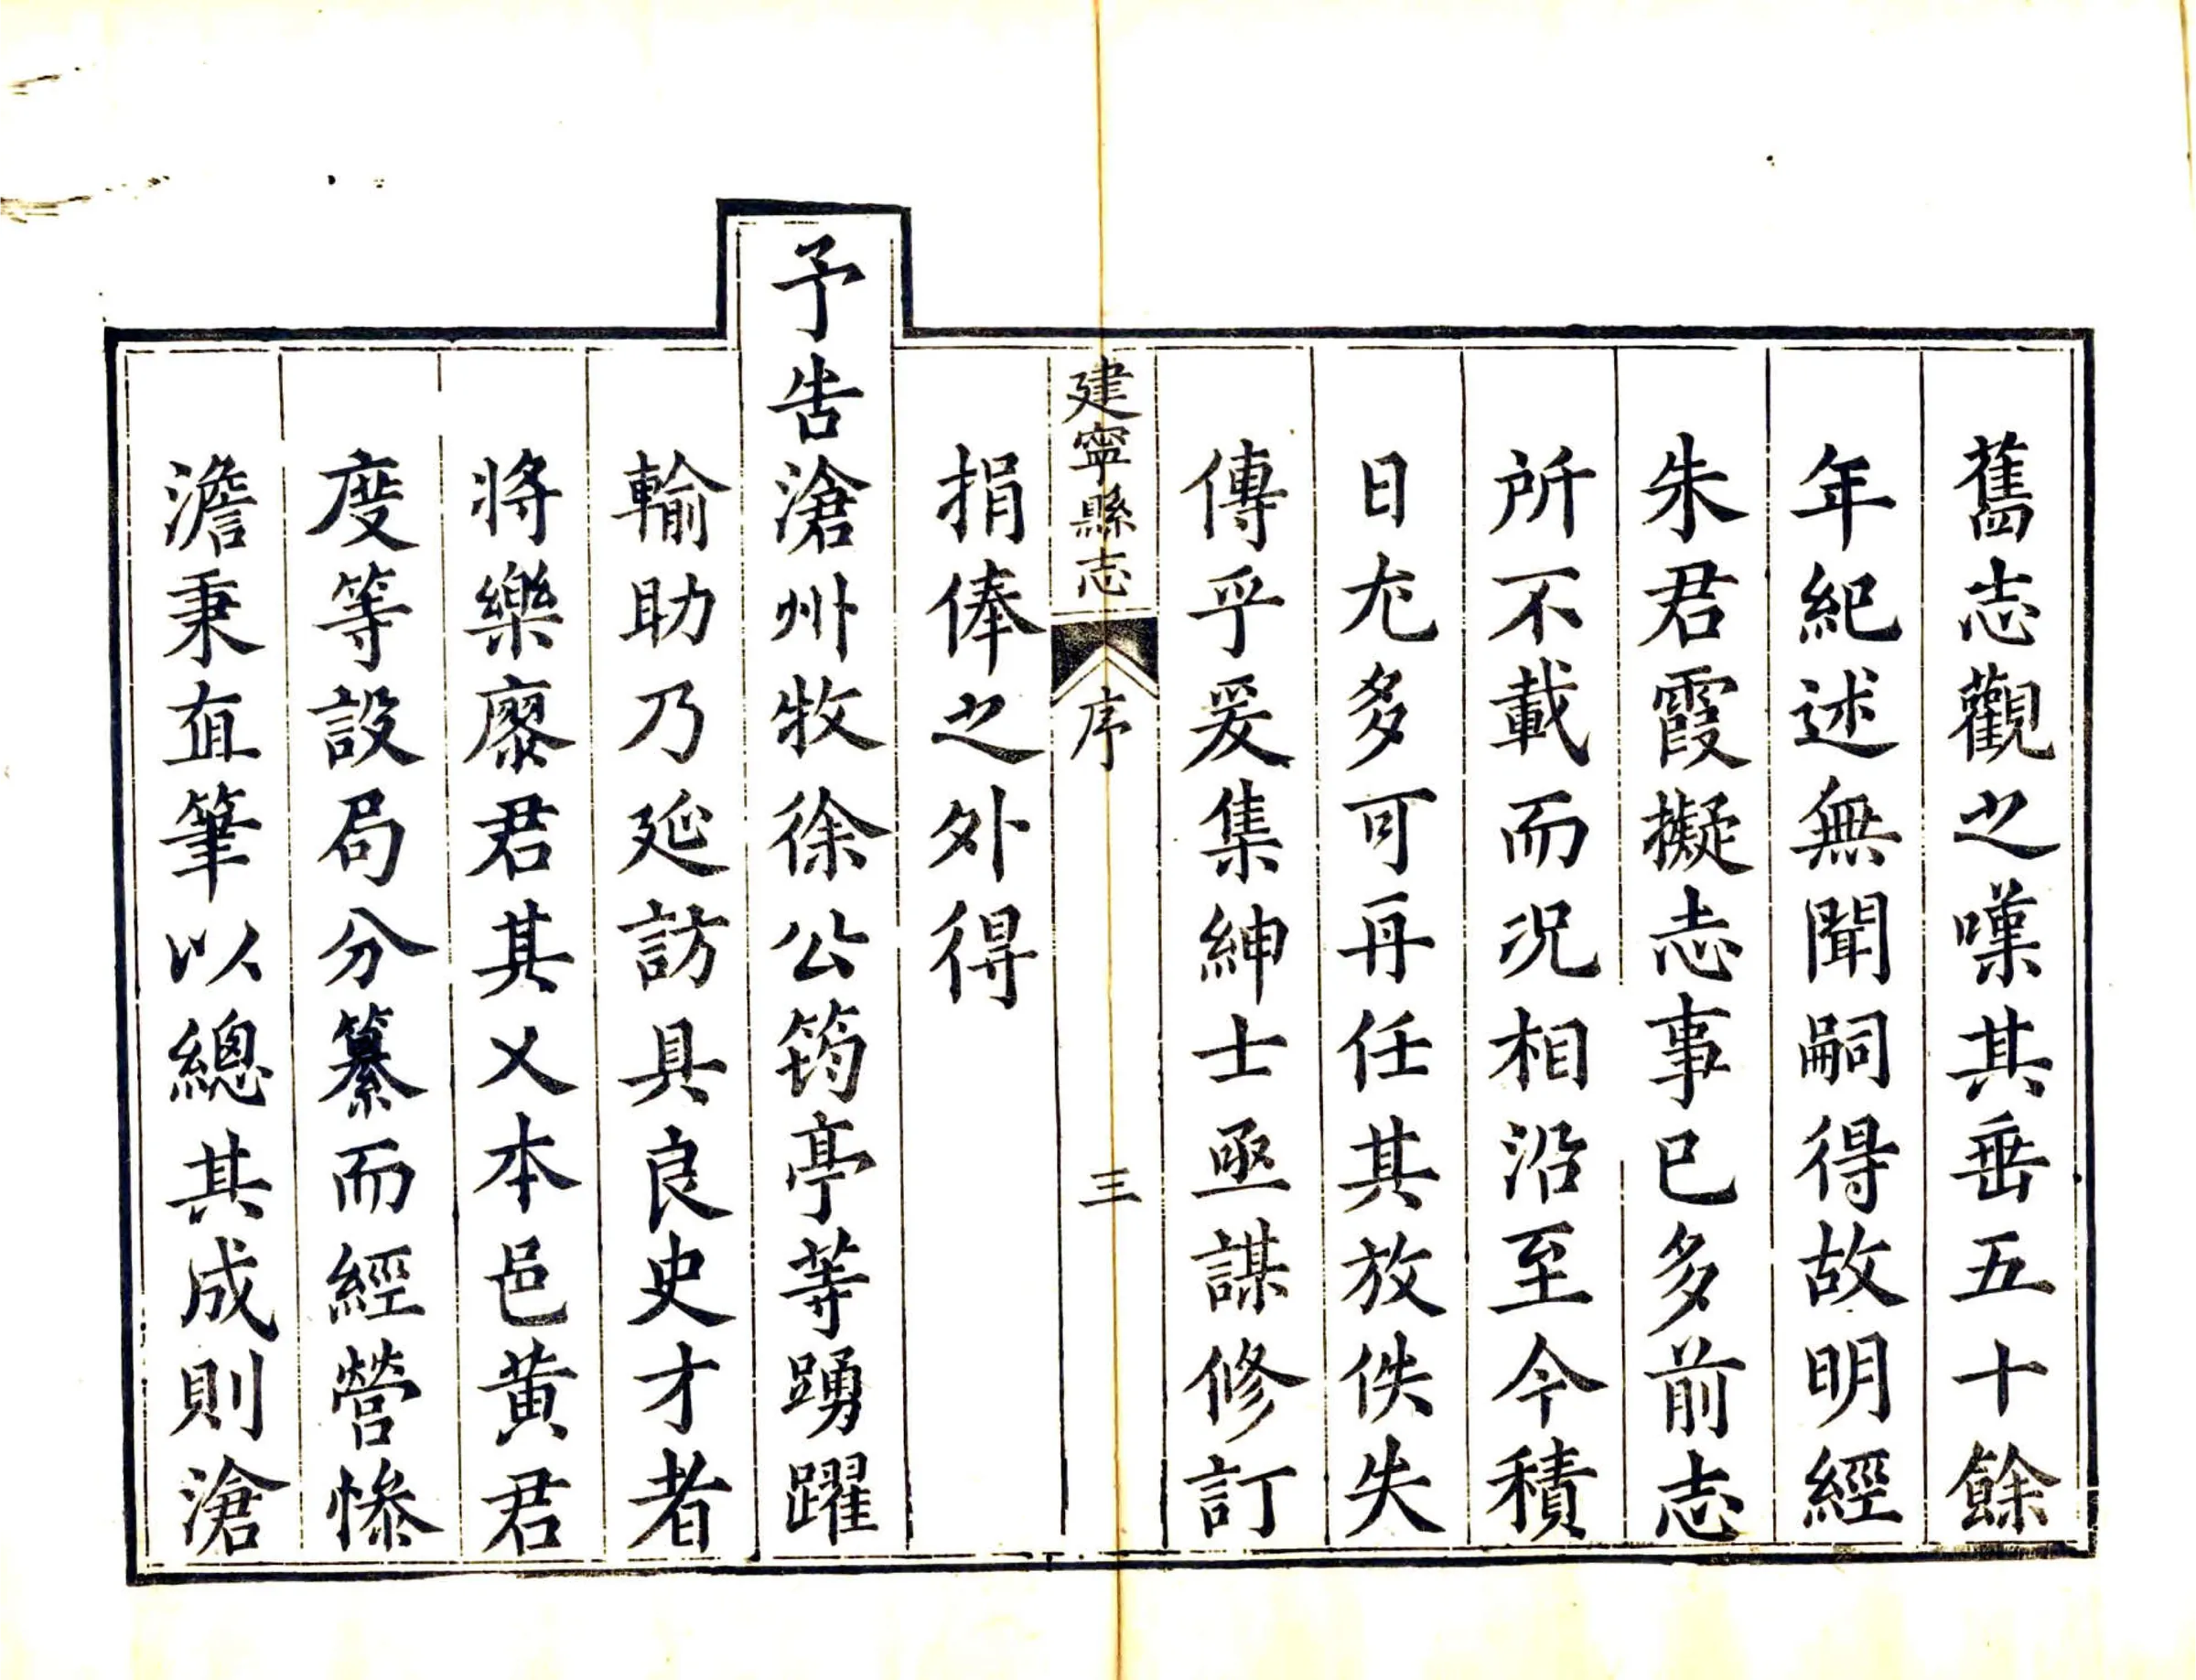 舊志觀之嘆其垂五十餘
年紀述無聞嗣得故明經
朱君霞擬志事已多前志
所不載而況相沿至今積
日尤多可再任其放佚失
傳乎爰集紳士亟謀修訂
捐俸之外得
建寧縣志
序
三
予告滄州牧徐公筠亭等踴躍
輸助乃延訪具良史才者
將樂廖君其乂本邑黄君
度等設局分纂而經營慘
澹秉直筆以總其成則滄